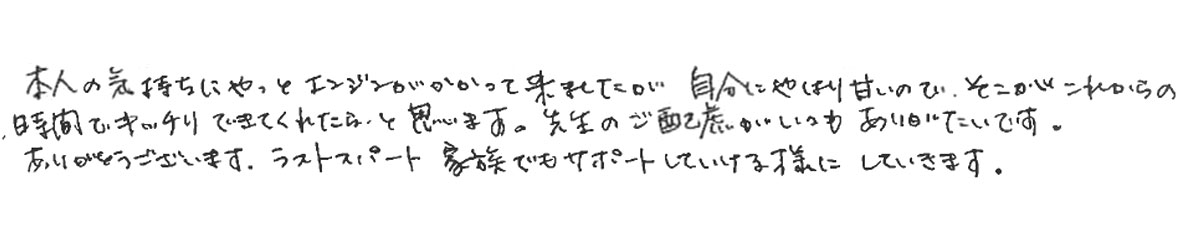 本人の気持ちにやっとエンジンがかかって来ましたが 自分にやはり甘いので、そこがこれからの
時間でキッチリできてくれたら、と思います。先生のご配慮がいつもありがたいです。
ありがとうございます。ラストスパート 家族でもサポートしていける様に していきます。